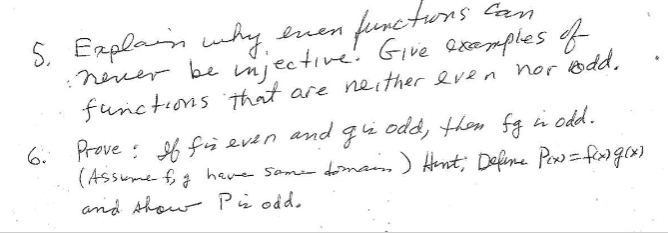 5. Explain why even functions can
never be injective! Give examples of
functions that are neither even nor odd.
6. Prove : If f is even and g is odd, then fg is odd.
(Assume f, g have same domain) Hint; Define P(x) = f(x)g(x)
and show P is odd.